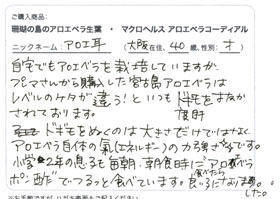 ご購入商品:
珊瑚の島のアロエベラ生葉 ・ マクロヘルス アロエベラコーディアル
ニックネーム:アロエ耳 (大阪在住、40歳、性別:オ)
自宅でもアロエベラを栽培していますが、
プーマさんから購入した宮古島アロエベラは
レベルのケタが違う!といつもド肝をぬか
されております。 度肝
ドギモをぬくのは大きさだけではなく、
アロエベラ自体の気(エネルギー)の力強さです。
小学2年の息子も毎朝、朝食時にアロエベラ
ポン酢でつるっと食べています。